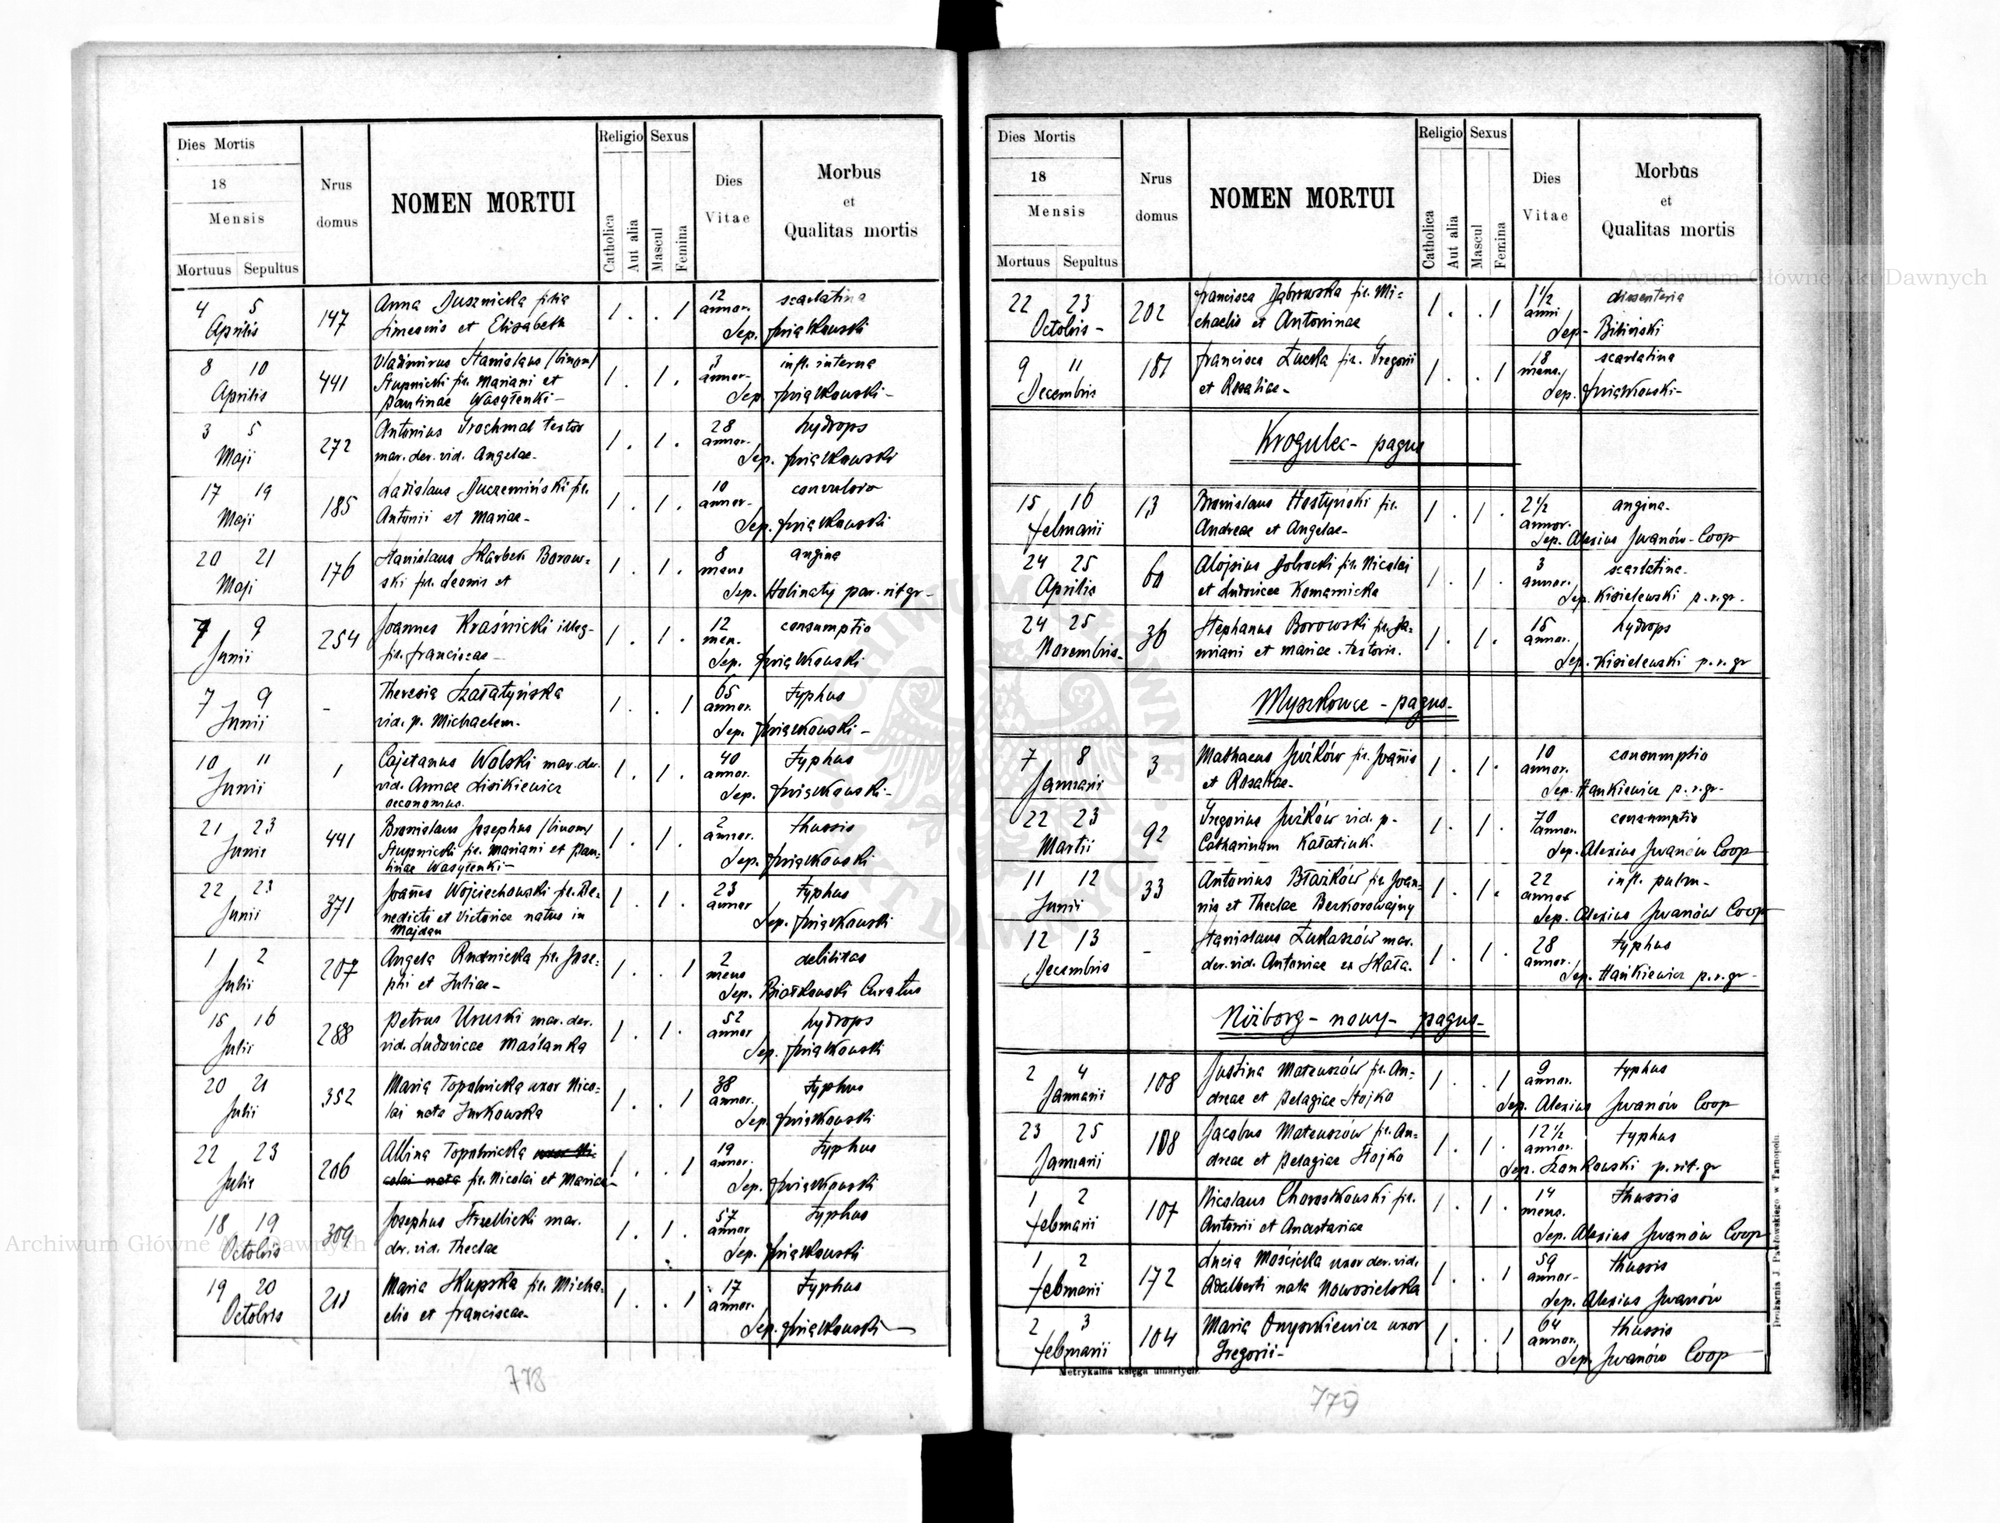 Dies Mortis
18
Mensis
Mortuus Sepultus
Nrus
domus
NOMEN MORTUI
Religio
Catholica
Aut alia
Sexus
Mascul
Femina
Dies
Vitae
Morbus
et
Qualitas mortis
4 5
Aprilis
147
Anna Dusznicka filia
Simeonis et Elisabeth
1 . . 1
12
annor.
scarlatina
Sep. Świątkowski
8 10
Aprilis
441
Vladimirus Stanislaus /binom/
Stupnicki fil. Mariani et
Paulinae Wasyłenki-
1 . 1 .
3
annor-
infl. interna
Sep. Świątkowski-
3 5
Maji
272
Antonius Trochmal textor
mar. der. vid. Angelae-
1 . 1 .
28
annor.
hydrops
Sep. Świątkowski
17 19
Maji
185
Ladislaus Juczemiński fil.
Antonii et Mariae-
1 . 1 .
10
annor-
convulsio
Sep. Świątkowski
20 21
Maji
176
Stanislaus Skarbek Borow-
ski fil. Leonis et
1 . 1 .
8
mens
angina
Sep. Holinaty par. rit gr-
7 9
Junii
254
Joannes Kraśnicki illeg-
fil. Franciscae-
1 . 1 .
12
men.
consumptio
Sep. Świątkowski
7 9
Junii
-
Theresia Szałatyńska
vid. p. Michaelem.
1 . . 1
65
annor.
typhus
Sep. Świątkowski-
10 11
Junii
1
Cajetanus Wolski mar. der.
vid. Annae Lisikiewicz
oeconomus.
1 . 1 .
40
annor.
typhus
Sep. Świątkowski-
21 23
Junii
441
Bronislaus Josephus /binom/
Stupnicki fil. Mariani et Pau-
linae Wasyłenki-
1 . 1 .
2
annor.
thussis
Sep. Świątkowski
22 23
Junii
371
Joañes Wojciechowski fil. Be-
nedicti et Victoriae natus in
Majdan
1 . 1 .
23
annor
typhus
Sep. Świątkowski
1 2
Julii
207
Angela Rudnicka fil. Jose-
phi et Juliae-
1 . . 1
2
mens
debilitas
Sep. Białkowski Curatus
15 16
Julii
288
Petrus Uruski mar. der.
vid. Ludovicae Maślanka
1 . 1 .
52
annor
hydrops
Sep. Świątkowski
20 21
Julii
352
Maria Topolnicka uxor Nico-
lai nata Jurkowska
1 . . 1
38
annor.
typhus
Sep. Świątkowski
22 23
Julii
206
Albina Topolnicka uxor Ni-
colai nata fil. Nicolai et Mariae-
1 . . 1
19
annor.
typhus
Sep. Świątkowski
18 19
Octobris
309
Josephus Strzelbicki mar.
der. vid. Theclae
1 . 1 .
57
annor
typhus
Sep. Świątkowski
19 20
Octobris
211
Maria Skupska fil. Micha-
elis et Franciscae-
1 . . 1
17
annor.
typhus
Sep. Świątkowski
778
Dies Mortis
18
Mensis
Mortuus Sepultus
Nrus
domus
NOMEN MORTUI
Religio
Catholica
Aut alia
Sexus
Mascul
Femina
Dies
Vitae
Morbus
et
Qualitas mortis
22 23
Octobris-
202
Francisca Dąbrowska fil. Mi-
chaelis et Antoninae
1 . . 1
1 1/2
anni
dissenteria
Sep- Biliński
9 11
Decembris
187
Francisca Łucka fil. Gregorii
et Rosaliae-
1 . . 1
18
mens.
scarlatina
Sep. Świątkowski-
Krogulec- pagus
15 16
Februarii
13
Bronislaus Hostyński fil.
Andreae et Angelae-
1 . 1 .
2 1/2
annor.
angina-
Sep. Alexius Iwanów- Coop
24 25
Aprilis
60
Alojsius Dobrocki fil. Nicolai
et Ludovicae Komarnicka
1 . 1 .
3
annor.
scarlatina-
Sep. Kisielewski p.r.gr-
24 25
Novembris-
36
Stephanus Borowski fil. Da-
miani et Mariae. textoris.
1 . 1 .
15
annor.
hydrops
Sep. Kisielewski p.r.gr
Myszkowce - pagus-
7 8
Januarii
3
Mathaeus Jużków fil. Joañis
et Rosaliae-
1 . 1 .
10
annor.
consumptio
Sep. Hankiewicz p.r.gr-
22 23
Martii
92
Gregorius Jużków vid. p.
Catharinam Kałatiuk.
1 . 1 .
70
annor.
consumptio
Sep. Alexius Iwanów Coop
11 12
Junii
33
Antonius Błażków fil. Joan-
nis et Theclae Bezkorowajny
1 . 1 .
22
annor
infl. pulm-
Sep. Alexius Iwanów Coop
12 13
Decembris
-
Stanislaus Łukaszów mar.
der. vid. Antoniae ex Skała.
1 . 1 .
28
annor.
typhus
Sep. Hańkiewicz p.r.gr-
Niżborg- nowy- pagus-
2 4
Januarii
108
Justina Mateuszów fil. An-
dreae et Pelagiae Stojko
1 . . 1
9
annor.
typhus
Sep. Alexius Iwanów Coop
23 25
Januarii
108
Jacobus Mateuszów fil. An-
dreae et Pelagiae Stojko
1 . 1 .
12 1/2
annor.
typhus
Sep. Szankowski p. rit. gr
1 2
Februarii
107
Nicolaus Chorostkowski fil.
Antonii et Anastasiae
1 . 1 .
14
mens.
thussis
Sep. Alexius Iwanów Coop
1 2
Februarii
172
Lucia Mościcka uxor der. vid.
Adalberti nata Nowosielska
1 . . 1
59
annor-
thussis
Sep. Alexius Iwanów
2 3
Februarii
104
Maria Onyszkiewicz uxor
Gregorii-
1 . . 1
64
annor.
thussis
Sep. Iwanów Coop
Metrykalna księga umarłych.
Drukarnia J. Pawłowskiego w Tarnopolu.
779
Archiwum Główne Akt Dawnych
Archiwum Główne Akt Dawnych
ARCHIWUM GŁÓWNE AKT DAWNYCH